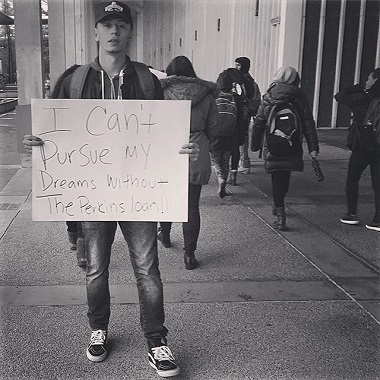 I Can't
Pursue My
Dreams Without
The Perkins loan!!